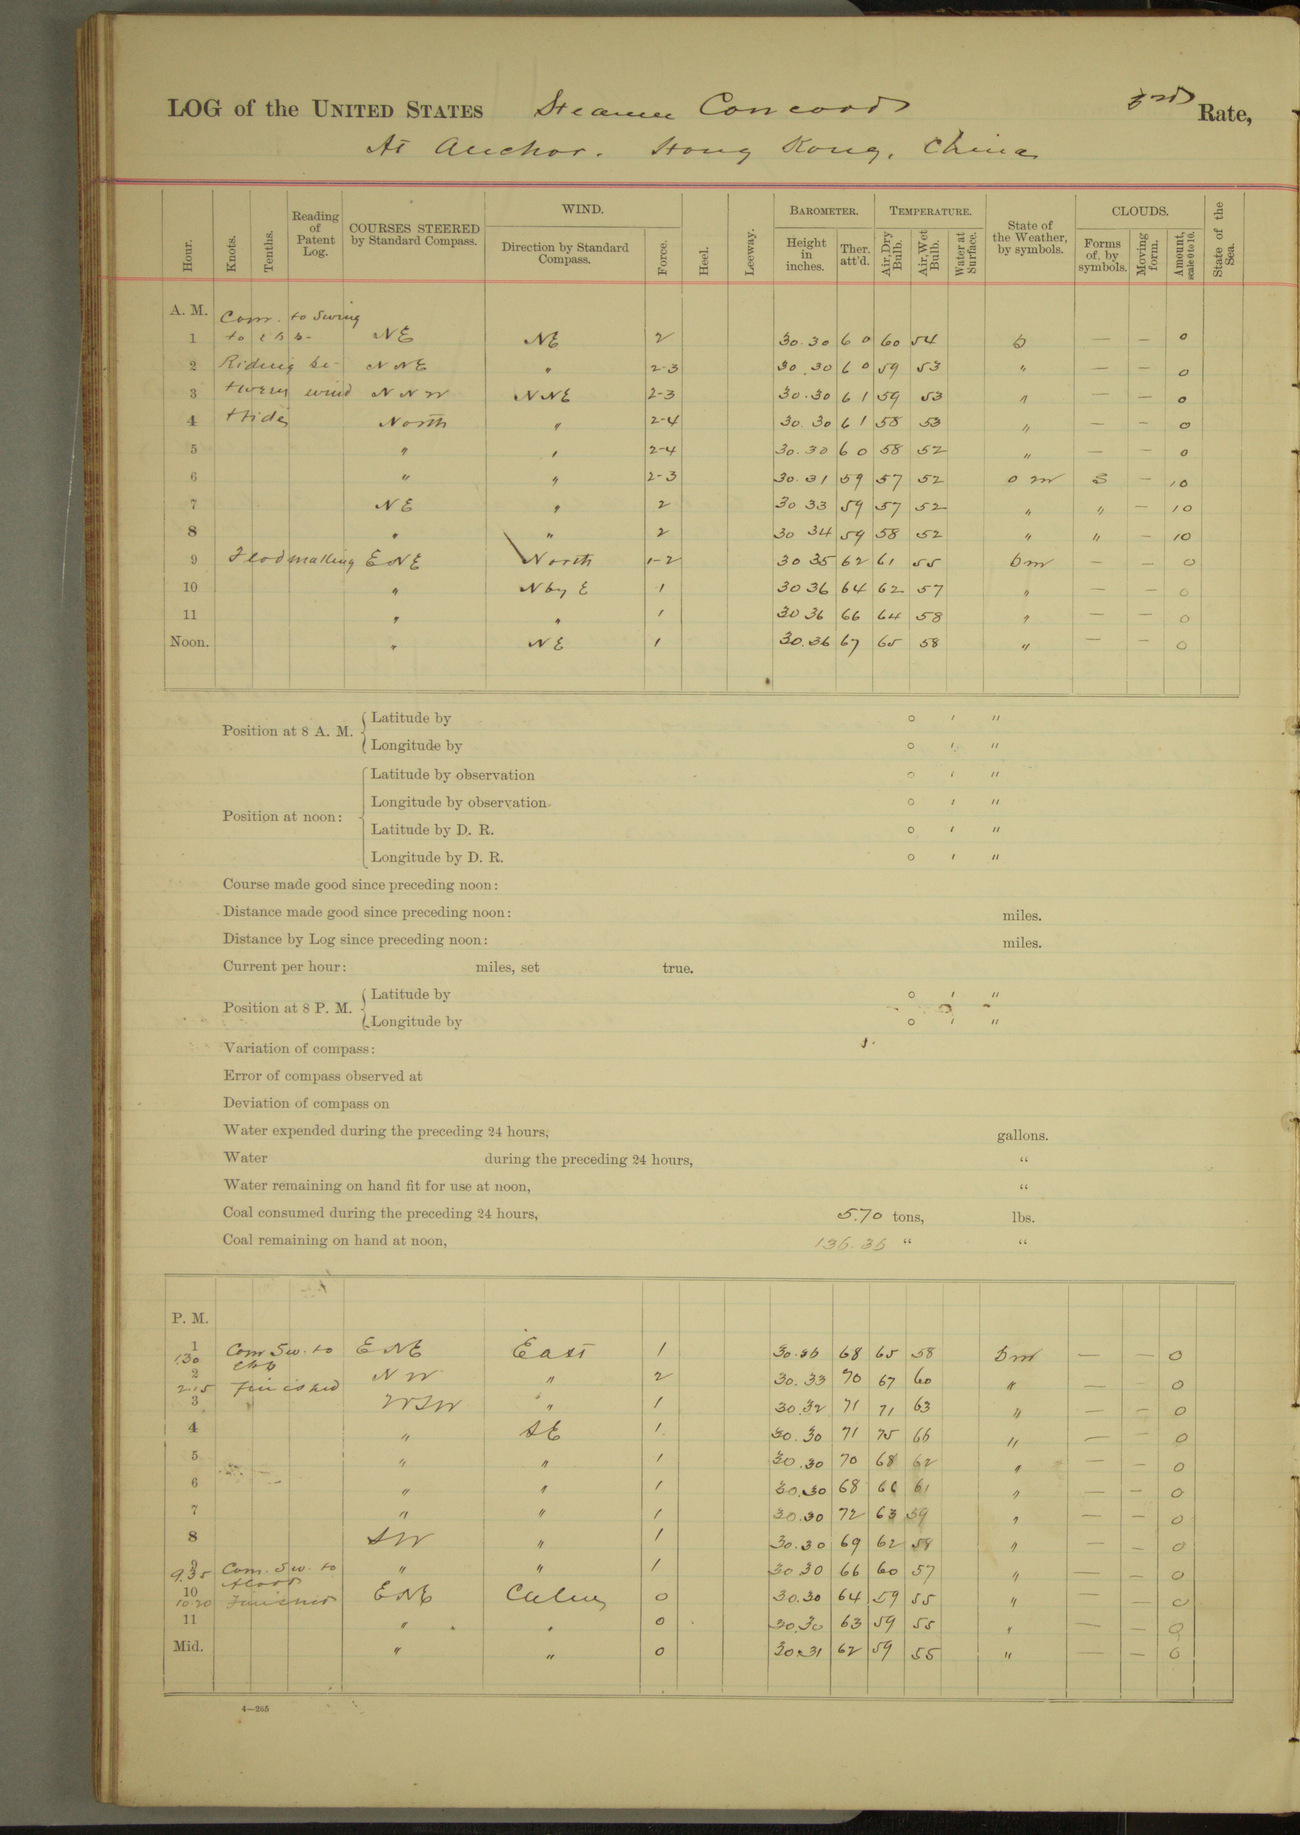 LOG of the UNITED STATES Steamer Concord 3rd Rate,
At Anchor. Hong Kong, China
Hour. Knots. Tenths. Reading of Patent Log. COURSES STEERED by Standard Compass. WIND. Direction by Standard Compass. Force. Heel. Leeway. BAROMETER. Height in inches. Ther. att'd. TEMPERATURE. Air, Dry Bulb. Air, Wet Bulb. Water at Surface. State of the Weather, by symbols. CLOUDS. Forms of, by symbols. Moving form. Amount, scale 0 to 10. State of the Sea.
A. M. Com. to Swing
1 to ebb- NE NE 2 30.30 60 60 54 b — — 0
2 Riding be- NNE " 2-3 30.30 60 59 53 " — — 0
3 tween wind NNW NNE 2-3 30.30 61 59 53 " — — 0
4 + tide North " 2-4 30.30 61 58 53 " — — 0
5 " " 2-4 30.30 60 58 52 " — — 0
6 " " 2-3 30.31 59 57 52 o m S — 10
7 NE " 2 30 33 59 57 52 " " — 10
8 " " 2 30 34 59 58 52 " " — 10
9 Flood making ENE North 1-2 30 35 62 61 55 bm — — 0
10 " N by E 1 30 36 64 62 57 " — — 0
11 " " 1 30 36 66 64 58 " — — 0
Noon. " NE 1 30.36 67 65 58 " — — 0
Position at 8 A. M. Latitude by ° ' "
Longitude by ° ' "
Position at noon: Latitude by observation ° ' "
Longitude by observation ° ' "
Latitude by D. R. ° ' "
Longitude by D. R. ° ' "
Course made good since preceding noon:
Distance made good since preceding noon: miles.
Distance by Log since preceding noon: miles.
Current per hour: miles, set true.
Position at 8 P. M. Latitude by ° ' "
Longitude by ° ' "
Variation of compass:
Error of compass observed at
Deviation of compass on
Water expended during the preceding 24 hours, gallons.
Water during the preceding 24 hours, "
Water remaining on hand fit for use at noon, "
Coal consumed during the preceding 24 hours, 5.70 tons, lbs.
Coal remaining on hand at noon, 136.35 " "
P. M.
1 Com Sw. to ENE East 1 30.36 68 65 58 bm — — 0
1.30 ebb
2 NW " 2 30.33 70 67 60 " — — 0
2.15 Finished
3 WSW " 1 30.32 71 71 63 " — — 0
4 " SE 1 30.30 71 75 66 " — — 0
5 " " 1 30.30 70 68 62 " — — 0
6 " " 1 30.30 68 66 61 " — — 0
7 " " 1 30.30 72 63 59 " — — 0
8 SW " 1 30.30 69 62 58 " — — 0
9 " " 1 30 30 66 60 57 " — — 0
9.35 Com. Sw. to flood
10 ENE Calm 0 30.30 64 59 55 " — — 0
10.20 Finished
11 " " 0 30.30 63 59 55 " — — 0
Mid. " " 0 30.31 62 59 55 " — — 0
4—265